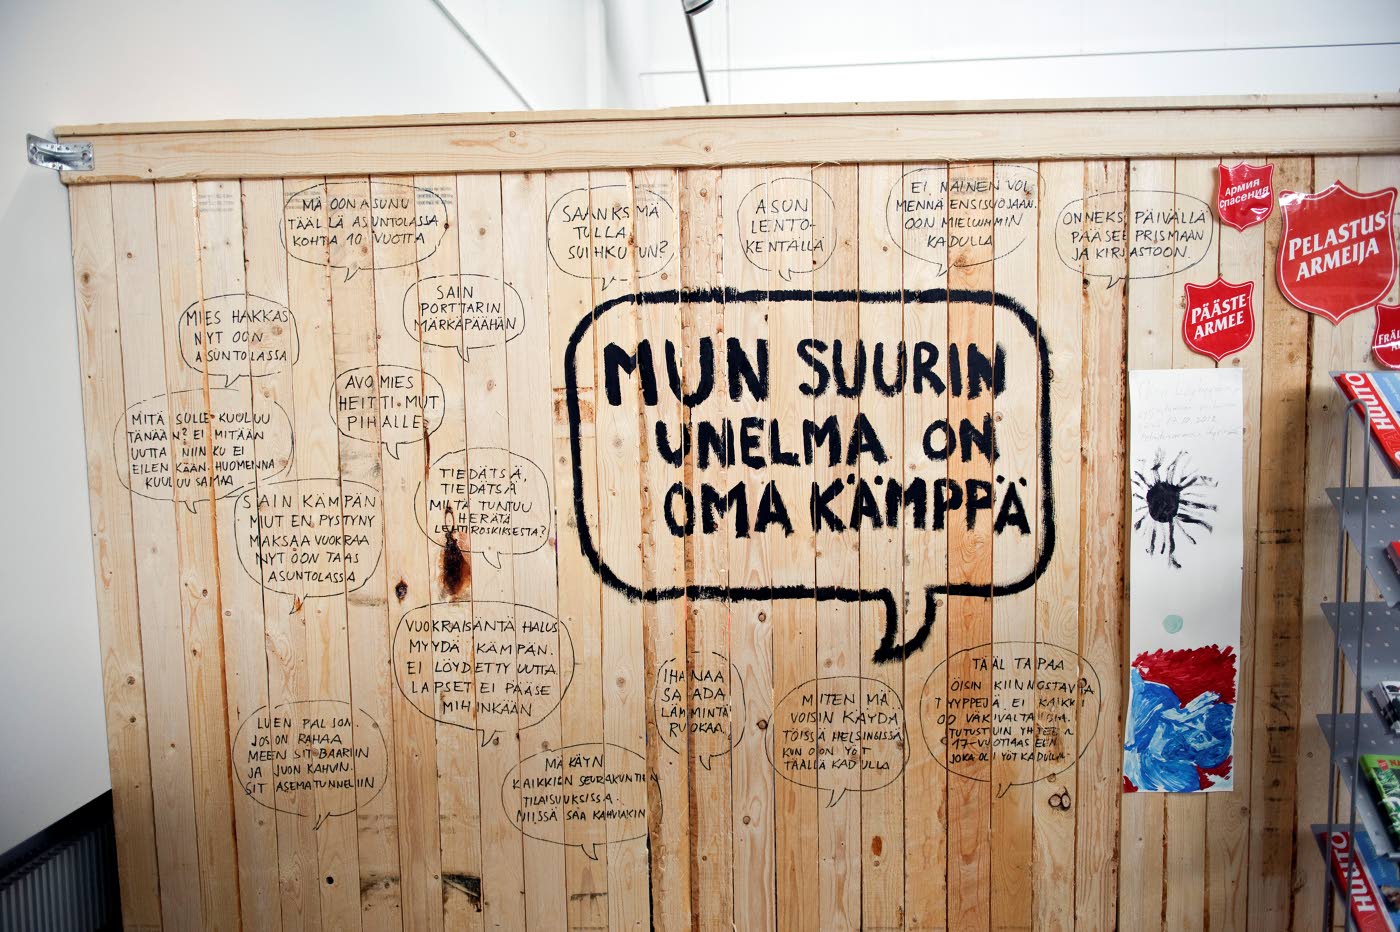 MÄ OON ASUNU
TÄÄLLÄ ASUNTOLASSA
KOHTA 10 VUOTTA
SAANKS MÄ
TULLA
SUIHKUUN?
ASUN
LENTO-
KENTÄLLÄ
EI NAINEN VOI
MENNÄ ENSISUOJAAN.
OON MIELUMMIN
KADULLA
ONNEKS PÄIVÄLLÄ
PÄÄSEE PRISMAAN
JA KIRJASTOON.
Армия
спасения
PELASTUS
ARMEIJA
PÄÄSTE-
ARMEE
FRÄL
SAIN
PORTTARIN
MÄRKÄPÄÄHÄN
MIES HAKKAS
NYT OON
ASUNTOLASSA
AVOMIES
HEITTI MUT
PIHALLE
MUN SUURIN
UNELMA ON
OMA KÄMPPÄ
MITÄ SULLE KUULUU
TÄNÄÄN? EI MITÄÄN
UUTTA NIINKU EI
EILENKÄÄN. HUOMENNA
KUULUU SAMAA
TIEDÄTSÄ,
TIEDÄTSÄ
MILTÄ TUNTUU
HERÄTÄ
LEHTIROSKIKSESTA?
SAIN KÄMPÄN
MUT EN PYSTYNY
MAKSAA VUOKRAA
NYT OON TAAS
ASUNTOLASSA
VUOKRAISÄNTÄ HALUS
MYYDÄ KÄMPÄN.
EI LÖYDETTY UUTTA
LAPSET EI PÄÄSE
MIHINKÄÄN
IHANAA
SAADA
LÄMMINTÄ
RUOKAA.
MITEN MÄ
VOISIN KÄYDÄ
TÖISSÄ HELSINGISSÄ
KUN OON YÖT
TÄÄLLÄ KADULLA
TÄÄL TAPAA
ÖISIN KIINNOSTAVIA
TYYPPEJÄ. EI KAIKKI
OO VÄKIVALTAISIA.
TUTUSTUIN YHTEEN
17-VUOTIAASEEN
JOKA OLI YÖT KADULLA
LUEN PALJON.
JOS ON RAHAA
MEEN SIT BAARIIN
JA JUON KAHVIN.
SIT ASEMATUNNELIIN
MÄ KÄYN
KAIKKIEN SEURAKUNTIEN
TILAISUUKSISSA.
NIISSÄ SAA KAHVIAKIN
HUUTO
HUUTO